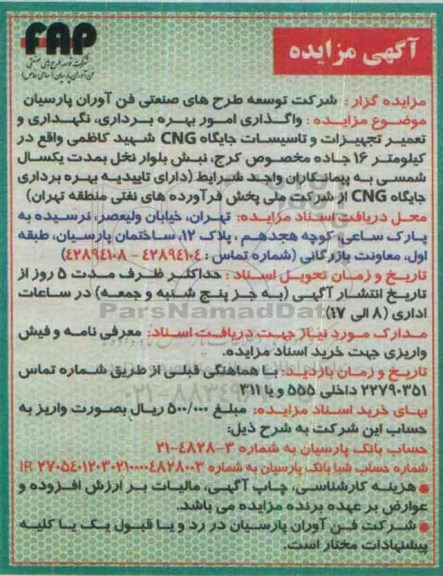 FAP
شرکت توسعه طرح های صنعتی
فن آوران پارسیان (سهامی خاص)
آگهی مزایده
مزایده گزار : شرکت توسعه طرح های صنعتی فن آوران پارسیان
موضوع مزایده : واگذاری امور بهره برداری، نگهداری و
تعمیر تجهیزات و تاسیسات جایگاه CNG شهید کاظمی واقع در
کیلومتر ۱۶ جاده مخصوص کرج، نبش بلوار نخل بمدت یکسال
شمسی به پیمانکاران واجد شرایط (دارای تاییدیه بهره برداری
جایگاه CNG از شرکت ملی پخش فرآورده های نفتی منطقه تهران)
محل دریافت اسناد مزایده: تهران، خیابان ولیعصر، نرسیده به
پارک ساعی، کوچه هجدهم ، پلاک ۱۲، ساختمان پارسیان، طبقه
اول، معاونت بازرگانی (شماره تماس : ۴۲۸۹۴۱۰۴ - ۴۲۸۹۴۱۰۸)
تاریخ و زمان تحویل اسناد : حداکثر ظرف مدت ۵ روز از
تاریخ انتشار آگهی (به جز پنج شنبه و جمعه) در ساعات
اداری (۸ الی ۱۷)
ParsNamadData
مدارک مورد نیاز جهت دریافت اسناد: معرفی نامه و فیش
واریزی جهت خرید اسناد مزایده.
تاریخ و زمان بازدید: با هماهنگی قبلی از طریق شماره تماس
۲۲۷۹۰۳۵۱ داخلی ۵۵۵ و یا ۳۱۱
بهای خرید اسناد مزایده: مبلغ ۵۰۰/۰۰۰ ریال بصورت واریز به
حساب این شرکت به شرح ذیل:
حساب بانک پارسیان به شماره ۳-۴۸۲۸-۲۱
شماره حساب شبا بانک پارسیان به شماره IR ۲۷۰۵۴۰۱۲۰۳۰۲۱۰۰۰۰۴۸۲۸۰۰۳
هزینه کارشناسی، چاپ آگهی، مالیات بر ارزش افزوده و
عوارض بر عهده برنده مزایده می باشد.
شرکت فن آوران پارسیان در رد و یا قبول یک یا کلیه
پیشنهادات مختار است.